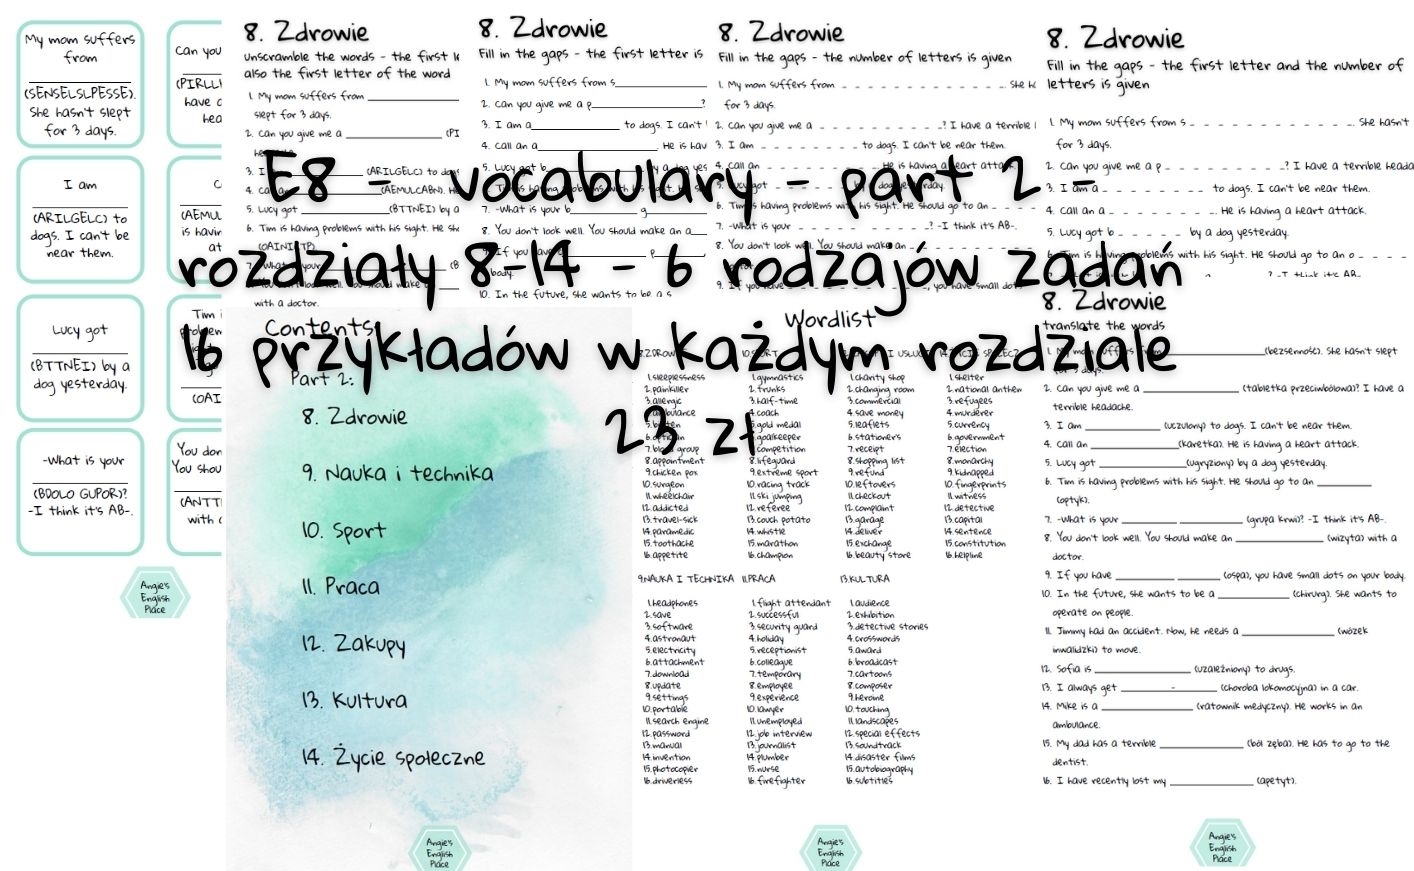 E8 - vocabulary - part 2 -
rozdziały 8-14 - 6 rodzajów zadań
16 przykładów w każdym rozdziale
23 zł
My mom suffers
from
(SENSELSLPESSE).
She hasn't slept
for 3 days.
I am
(ARILGELC) to
dogs. I can't be
near them.
Lucy got
(BTTNEI) by a
dog yesterday.
-What is your
(BDOLO GUPOR)?
-I think it's AB-.
Can you
have a
C
(AEMUL
is havin
at
Tim i
(OAI
You don
You shou
(ANTT
with a
Angie's
English
Place
8. Zdrowie
unscramble the words - the first le
also the first letter of the word
1. My mom suffers from
slept for 3 days.
2. Can you give me a (PI
3. I (ARILGELC) to dogs
(AEMULCABN). H
5. Lucy got (BTTNEI) by a
6. Tim is having problems with his sight. He sh
with a doctor.
8. Zdrowie
Fill in the gaps - the first letter is
1. My mom suffers from s
2. Can you give me a p ?
3. I am a to dogs. I can't
4. Call an a . He is hav
5. Lucy got b by a dog yes
7. -What is your b g
8. You don't look well. You should make an a
If you have p
body.
10. In the future, she wants to be a s
8. Zdrowie
Fill in the gaps - the number of letters is given
1. My mom suffers from . She ha
for 3 days.
2. Can you give me a ? I have a terrible
3. I am to dogs. I can't be near them.
4. Call an . He is having a heart attack.
6. Tim is having problems with his sight. He should go to an
7. -What is your ? -I think it's AB-.
8. You don't look well. You should make an
9. If you have , you have small dots
8. Zdrowie
Fill in the gaps - the first letter and the number of
letters is given
1. My mom suffers from s . She hasn't
for 3 days.
2. Can you give me a p ? I have a terrible heada
3. I am a to dogs. I can't be near them.
4. Call an a . He is having a heart attack.
5. Lucy got b by a dog yesterday.
6. Tim is having problems with his sight. He should go to an o
Contents
Part 2:
8. Zdrowie
9. Nauka i technika
10. Sport
11. Praca
12. Zakupy
13. Kultura
14. Życie społeczne
Angie's
English
Place
Wordlist
1.sleeplessness
2.painkiller
3.allergic
4.ambulance
5.bitten
6.optician
7.blood group
8.appointment
9.chicken pox
10.surgeon
11.wheelchair
12.addicted
13.travel-sick
14.paramedic
15.toothache
16.appetite
1.gymnastics
2.trunks
3.half-time
4.coach
5.gold medal
6.goalkeeper
7.competition
8.lifeguard
9.extreme sport
10.racing track
11.ski jumping
12.referee
13.couch potato
14.whistle
15.marathon
16.champion
1.charity shop
2.changing room
3.commercial
4.save money
5.leaflets
6.stationer's
7.receipt
8.shopping list
9.refund
10.leftovers
11.checkout
12.complaint
13.garage
14.deliver
15.exchange
16.beauty store
1.shelter
2.national anthem
3.refugees
4.murderer
5.currency
6.government
7.election
8.monarchy
9.kidnapped
10.fingerprints
11.witness
12.detective
13.capital
14.sentence
15.constitution
16.helpline
9.NAUKA I TECHNIKA
1.headphones
2.save
3.software
4.astronaut
5.electricity
6.attachment
7.download
8.update
9.settings
10.portable
11.search engine
12.password
13.manual
14.invention
15.photocopier
16.driverless
11.PRACA
1.flight attendant
2.successful
3.security guard
4.holiday
5.receptionist
6.colleague
7.temporary
8.employee
9.experience
10.lawyer
11.unemployed
12.job interview
13.journalist
14.plumber
15.nurse
16.firefighter
13.KULTURA
1.audience
2.exhibition
3.detective stories
4.crosswords
5.award
6.broadcast
7.cartoons
8.composer
9.heroine
10.touching
11.landscapes
12.special effects
13.soundtrack
14.disaster films
15.autobiography
16.subtitles
Angie's
English
Place
8. Zdrowie
translate the words
1. My mom suffers from (bezsenność). She hasn't slept
for 3 days.
2. Can you give me a (tabletka przeciwbólowa)? I have a
terrible headache.
3. I am (uczulony) to dogs. I can't be near them.
4. Call an (karetka). He is having a heart attack.
5. Lucy got (ugryziony) by a dog yesterday.
6. Tim is having problems with his sight. He should go to an
(optyk).
7. -What is your (grupa krwi)? -I think it's AB-.
8. You don't look well. You should make an (wizyta) with a
doctor.
9. If you have (ospa), you have small dots on your body.
10. In the future, she wants to be a (chirurg). She wants to
operate on people.
11. Jimmy had an accident. Now, he needs a (wózek
inwalidzki) to move.
12. Sofia is (uzależniony) to drugs.
13. I always get - (choroba lokomocyjna) in a car.
14. Mike is a (ratownik medyczny). He works in an
ambulance.
15. My dad has a terrible (ból zęba). He has to go to the
dentist.
16. I have recently lost my (apetyt).
Angie's
English
Place